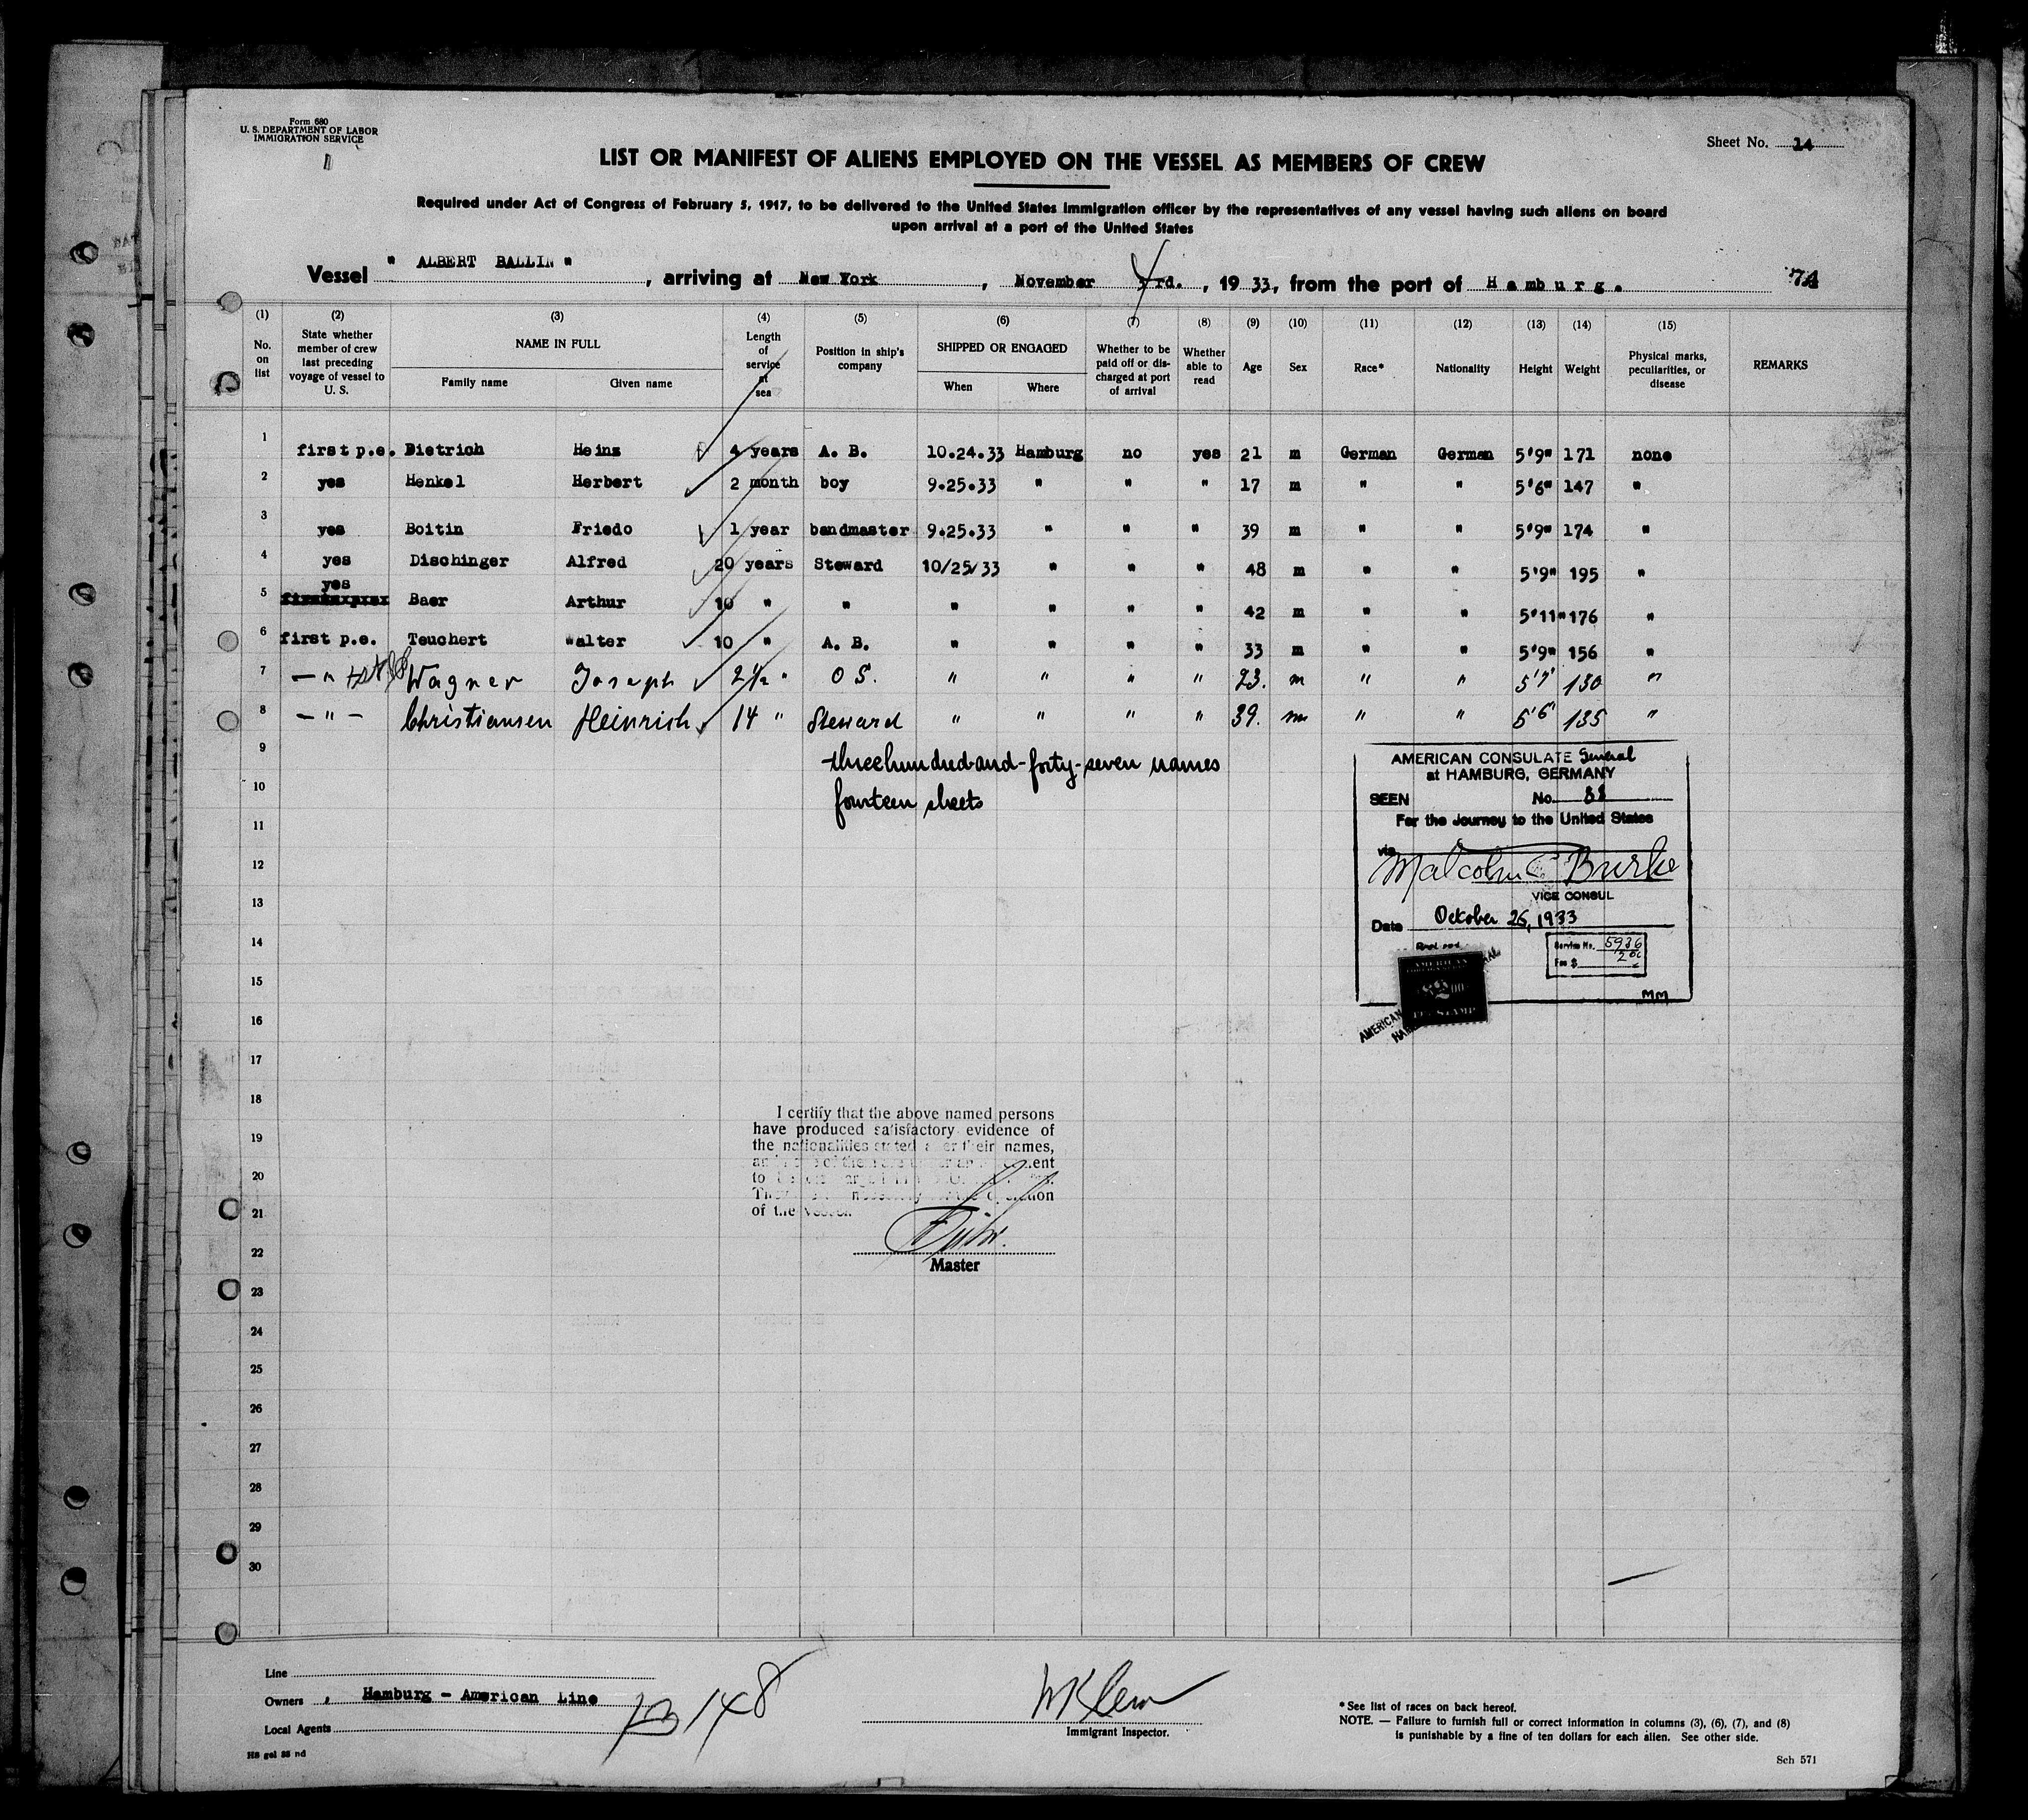 Form 680
U. S. DEPARTMENT OF LABOR
IMMIGRATION SERVICE
Sheet No. 14
LIST OR MANIFEST OF ALIENS EMPLOYED ON THE VESSEL AS MEMBERS OF CREW
Required under Act of Congress of February 5, 1917, to be delivered to the United States immigration officer by the representatives of any vessel having such aliens on board
upon arrival at a port of the United States
Vessel " ALBERT BALLIN ", arriving at New York, November rd., 1933, from the port of Hamburg. 74
(1) No. on list
(2) State whether member of crew last preceding voyage of vessel to U. S.
(3) NAME IN FULL Family name Given name
(4) Length of service at sea
(5) Position in ship's company
(6) SHIPPED OR ENGAGED When Where
(7) Whether to be paid off or discharged at port of arrival
(8) Whether able to read
(9) Age
(10) Sex
(11) Race*
(12) Nationality
(13) Height
(14) Weight
(15) Physical marks, peculiarities, or disease
REMARKS
1 first p.e. Dietrich Heinz 4 years A. B. 10.24.33 Hamburg no yes 21 m German German 5'9" 171 none
2 yes Henkel Herbert 2 month boy 9.25.33 " " " 17 m " " 5'6" 147 "
3 yes Boitin Friedo 1 year bandmaster 9.25.33 " " " 39 m " " 5'9" 174 "
4 yes Dischinger Alfred 20 years Steward 10/25/33 " " " 48 m " " 5'9" 195 "
5 yes Baer Arthur 10 " " " " " " 42 m " " 5'11" 176 "
6 first p.e. Teuchert Walter 10 " A. B. " " " " 33 m " " 5'9" 156 "
7 — " Wagner Joseph 2½ " O S. " " " " 23. m " " 5'7" 130 "
8 — " — Christiansen Heinrich 14 " Steward " " " " 39. m " " 5'6" 135 "
9
threehundred-and-forty-seven names
10
fourteen sheets
11
12
13
14
15
16
17
18
19
20
21
22
23
24
25
26
27
28
29
30
AMERICAN CONSULATE General
at HAMBURG, GERMANY
SEEN No. 88
For the Journey to the United States
via
Malcolm C Burke
VICE CONSUL
Date October 26, 1933
Service No. 5936
Fee $ 2
MM
AMERICAN
$2 00
FEE STAMP
AMERICAN
I certify that the above named persons
have produced satisfactory evidence of
the nationalities stated after their names,
of the vessel.
Master
Line
Owners, Hamburg - American Line
Local Agents
148
Immigrant Inspector.
* See list of races on back hereof.
NOTE. — Failure to furnish full or correct information in columns (3), (6), (7), and (8)
is punishable by a fine of ten dollars for each alien. See other side.
HS gel 88 nd
Sch 571